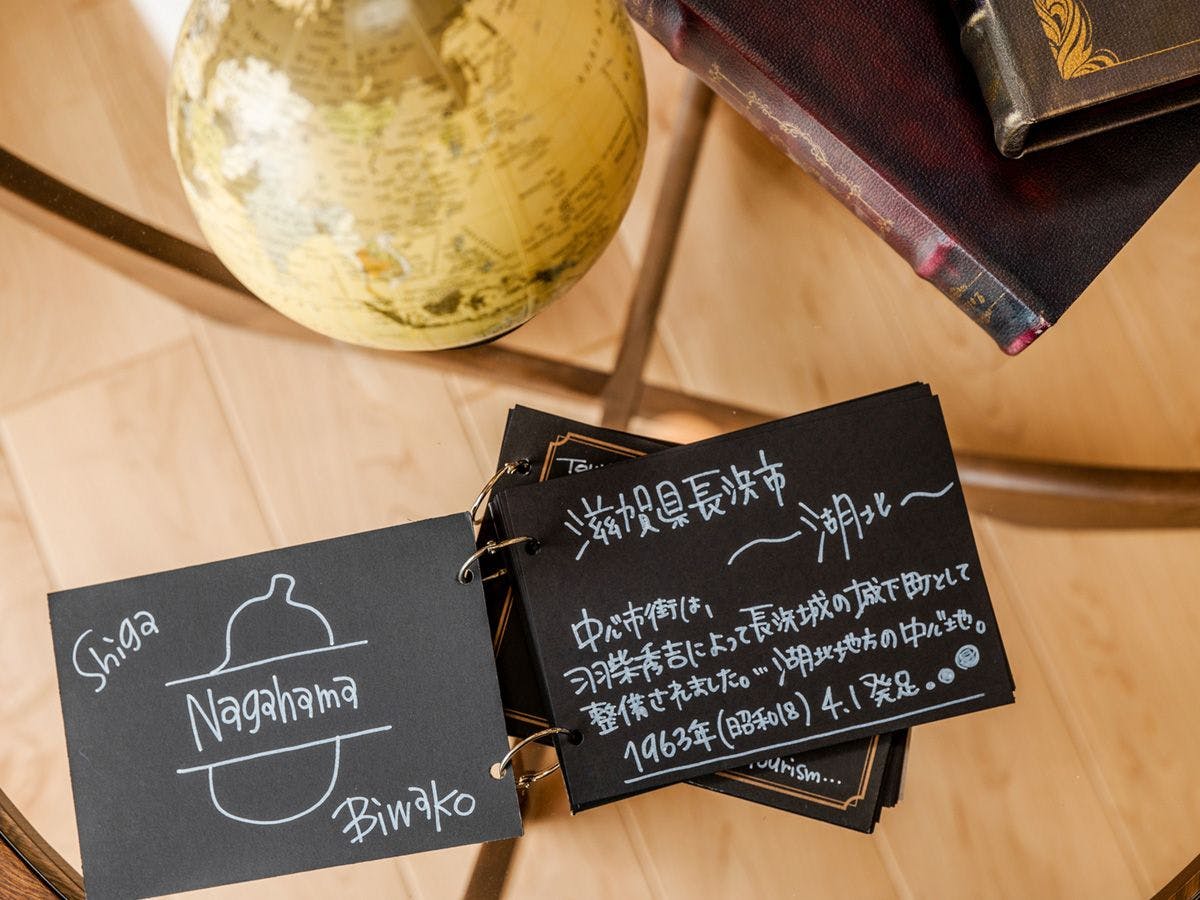 Shiga
Nagahama
Biwako
滋賀県長浜市
～湖北～
中心市街は、
羽柴秀吉によって長浜城の城下町として
整備されました。… 湖北地方の中心地。
1963年(昭和18) 4.1発足。
Tourism...